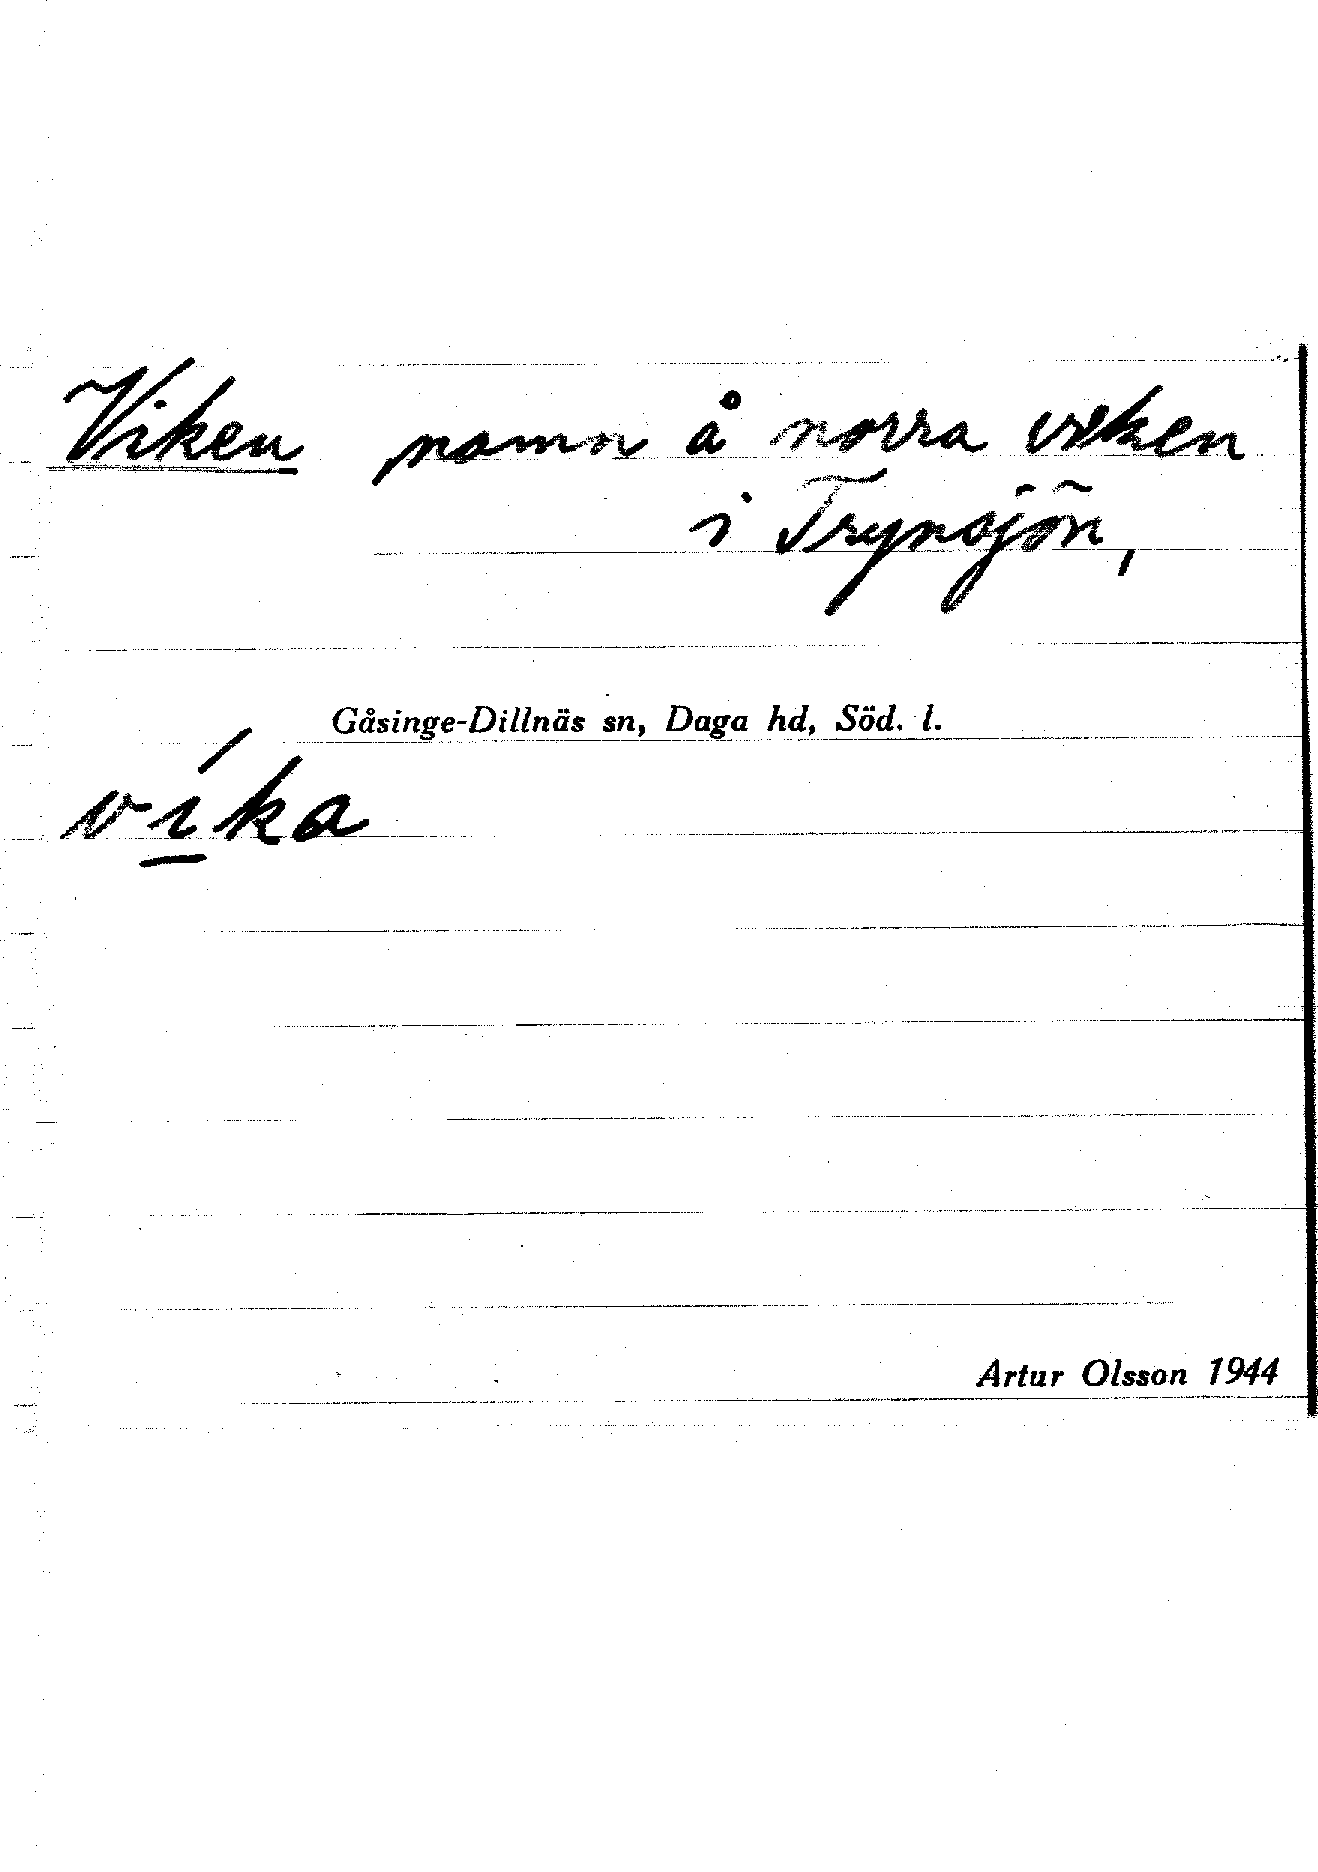 Viken namn å norra viken
i Trynsjön,
Gåsinge-Dillnäs sn, Daga hd, Söd. l.
víka
Artur Olsson 1944